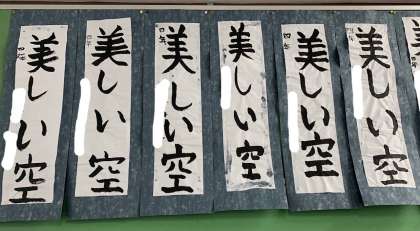 美しい空
四年
美しい空
四年
美しい空
四年
美しい空
美しい空
四年
美しい空
四年